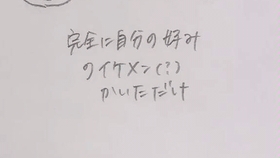 完全に自分の好み
のイケメン(?)
かいただけ